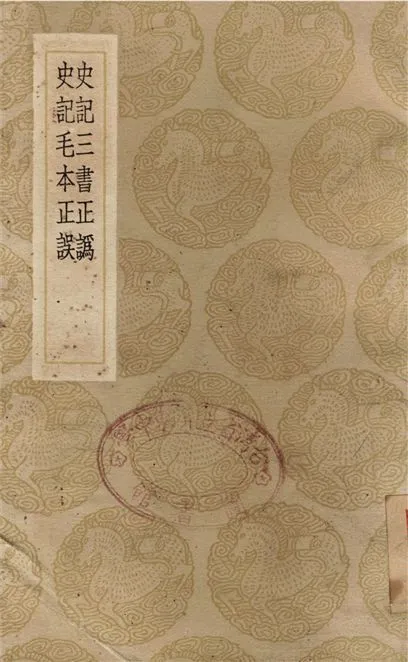 史記三書正譌
史記毛本正誤